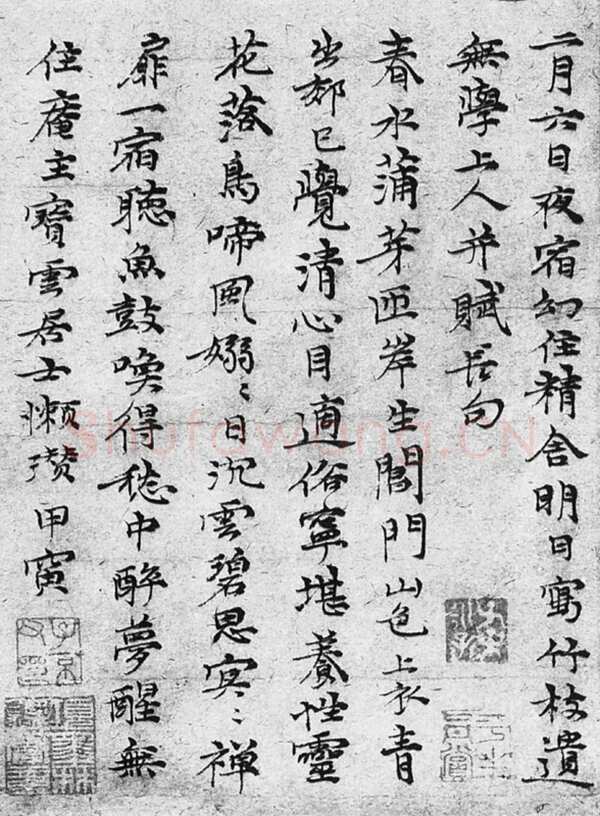 二月六日夜宿幻住精舍明日寫竹枝遺
無學上人并賦長句
春水蒲芽匝岸生閶門山色上衣青
出郊已覺清心目適俗寧堪養性靈
花落鳥啼風嫋〻日沉雲碧思冥〻禅
扉一宿聴魚鼓喚得稔中醉夢醒無
住庵主寶雲居士懶瓚甲寅
Shufawang.CN